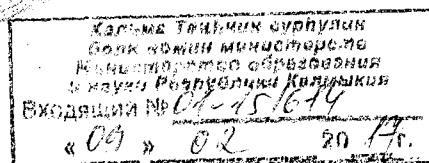 Хальмг Таңһчин сурһулин
болн номин министерств
Министерство образования
и науки Республики Калмыкия
Входящий № 01-15/614
« 09 » 02 20 17г.